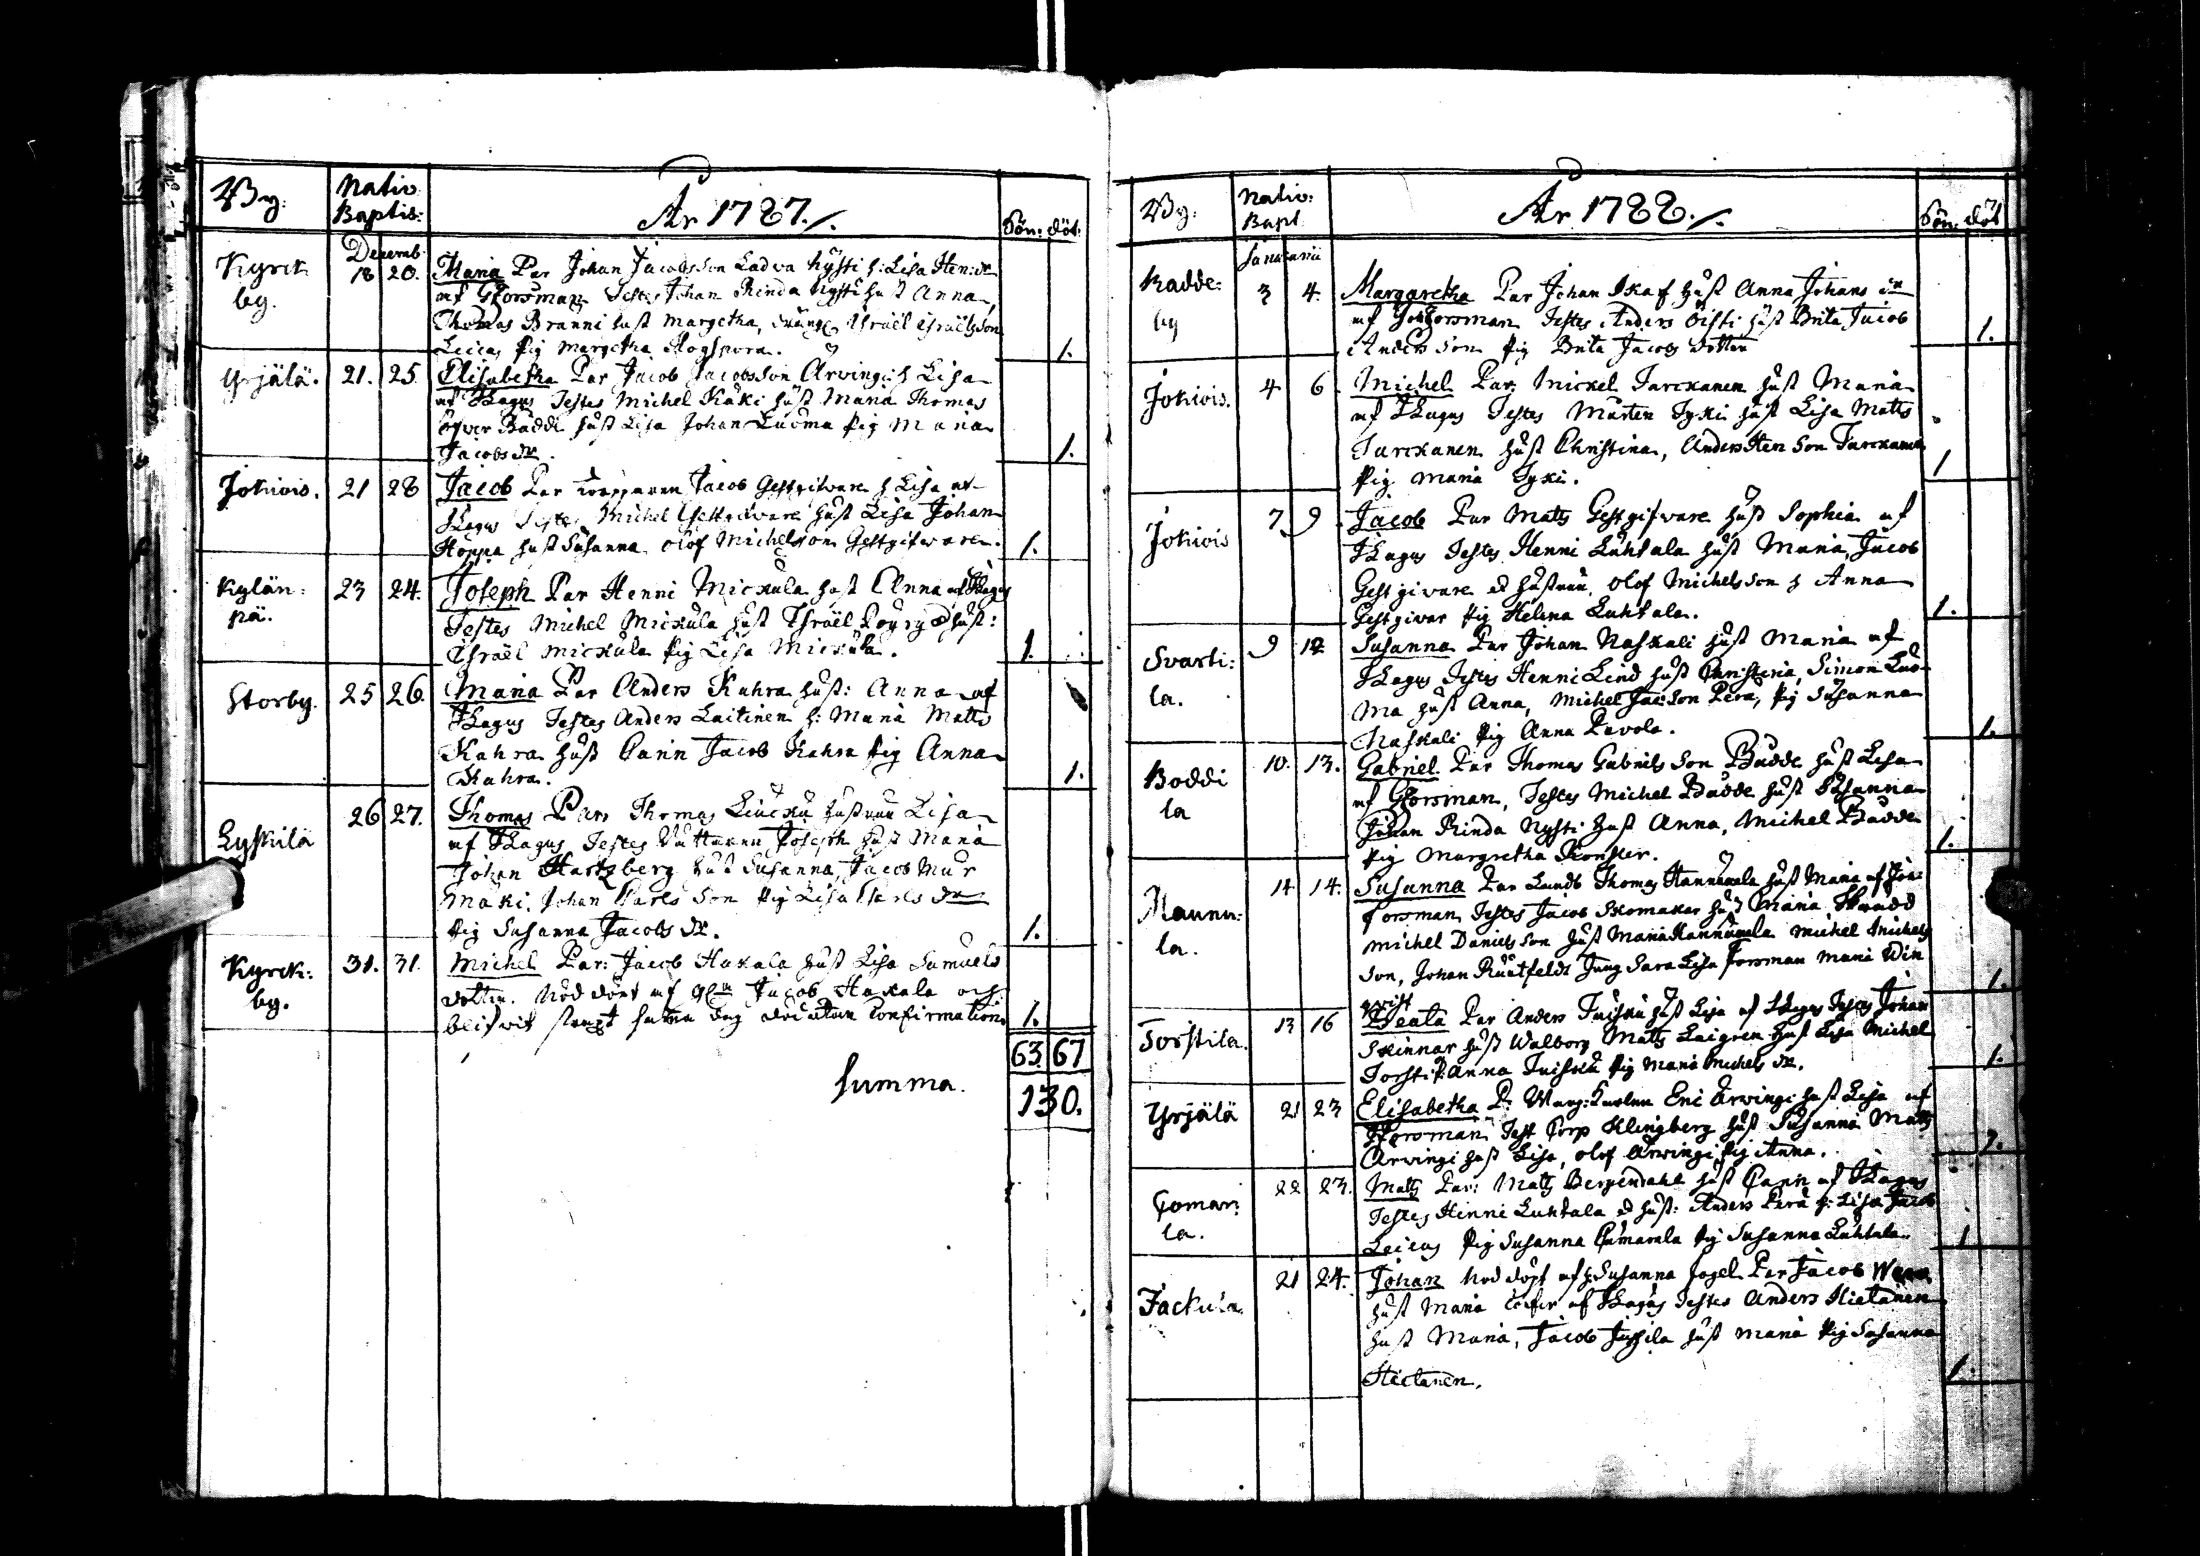 By:
Nativ
Baptis:
År 1787./.
Sön: döt:
Decemb:
Kyrck
by.
18 20.
Maria Par Johan Jacobsson Ladva Nysti h: Lisa Hen: dr
af GForsman Testes Johan Rinda Nysti hust Anna,
Thomas Branni hust Margetha, dräng Israël Israëlsson
Leicas pig Margetha Skogspora.
1.
Yrjälä.
21. 25.
Elisabetha Par Jacob Jacobsson Arwingi h Lisa
af ILagus Testes Michel Kaki hust Maria Thomas
Böddi hust Lisa Johan Luoma pig Maria
Jacobs dr.
1.
Jokiois.
21 28
Jacob Par Jacob Gestgifware h Lisa af
ILagus Testes Michel Gestgifvare hust Lisa Johan
Hoppa hust Susanna Olof Michelsson Gestgifvaren.
1.
Kylän:
pä.
23 24.
Joseph Par Henni Mickula hust Anna af ILagus
Testes Michel Mickula hust Israël Pöyry d hust:
Israël Mickula pig Lisa Mickula.
1.
Storby.
25 26.
Maria Par Anders Kahra hust: Anna af
ILagus Testes Anders Laitinen h: Maria Matts
Kahra hust Carin Jacob Kahra pig Anna
Kahra.
1.
Lyskilä
26 27.
Thomas Par Thomas Liucku hustrun Lisa
af ILagus Testes Joseph hust Maria
Johan Hartzberg hust Susanna, Jacob Mur
mäki, Johan Carls Son pig Lisa Carls dr
pig Susanna Jacobs dr.
1.
Kyrck:
by.
31. 31.
Michel Par: Jacob Hakala hust Lisa Samuels
dotter. Nöd döpt af Jacob Hakala och
blifvit samma dag Confirmation.
1.
63 67
Summa.
130.
By:
Nativ:
Bapt
År 1788./.
Sön: döt
Januarii
Radde:
by
3 4.
Margaretha Par Johan Skaf hust Anna Johans dr
af Forsman Testes Anders Öisti hust Brita Jacob
Anders Son pig Brita Jacobs dotter
1.
Jokiois.
4 6
Michel Par Mickel Turckanen hust Maria
af ILagus Testes Mårten Tyki hust Lisa Matts
Turckanen hust Christina, Anders Hen Son Turckanen
pig Maria Tyki.
1
Jokiois
7 9
Jacob Par Matts Gestgifvare hust Sophia af
ILagus Testes Henni Luhtala hust Maria, Jacob
Gestgivare d hustrun, Olof Michelsson h Anna
Gestgivar pig Helena Luhtala.
1.
Svarti:
la.
9 12
Susanna Par Johan Naskali hust Maria af
ILagus Testes Henni Lind hust Christina, Simon Luo
ma hust Anna, Michel Jac: Son Pera, pig Susanna
Naskali pig Anna Pavola.
1.
Boddi
la
10. 13.
Gabriel Par Thomas Gabriels Son Budde hust Lisa
af GForsman, Testes Michel Budde hust Susanna
Johan Rinda Nysti hust Anna, Michel Budde
pig Margretha Konster.
1.
Maunu:
la.
14 14.
Susanna Par Thomas Hannunela hust Maria af Joh:
Forsman Testes Jacob Skomakar hust Maria
Michel Daniels Son hust Maria Hannunela Michel Michels
Son, Johan Ruutfeldt Jung Sara Lisa Forsman Maria Win
qvist
1.
Torstila.
13 16
Beata Par Anders Tuisku hust Lisa af ILagus Testes Johan
Skinnar hust Walborg Matts Laigren hust Lisa Michel
Torsti: Anna Tuisku pig Maria Michels dr.
1.
Yrjälä
21 23
Elisabetha P: Eric Arwingi hust Lisa af
Forsman Test Corp Klingberg hust Susanna Matts
Arwingi hust Lisa, Olof Arwingi, pig Anna.
1.
Goman:
la.
22 23.
Matts Par: Matts Bergendahl hust Carin af ILagus
Testes Hinni Luhtala d hust: Anders Pera h: Lisa Jacob
Leicas pig Susanna pig Susanna Luhtala.
1
Jackula
21 24.
Johan Nöd döpt af h: Susanna Jogel Par Jacob
hust Maria af ILagus Testes Anders Hietanen
hust Maria, Jacob Jussila hust Maria pig Susanna
Hietanen.
1.